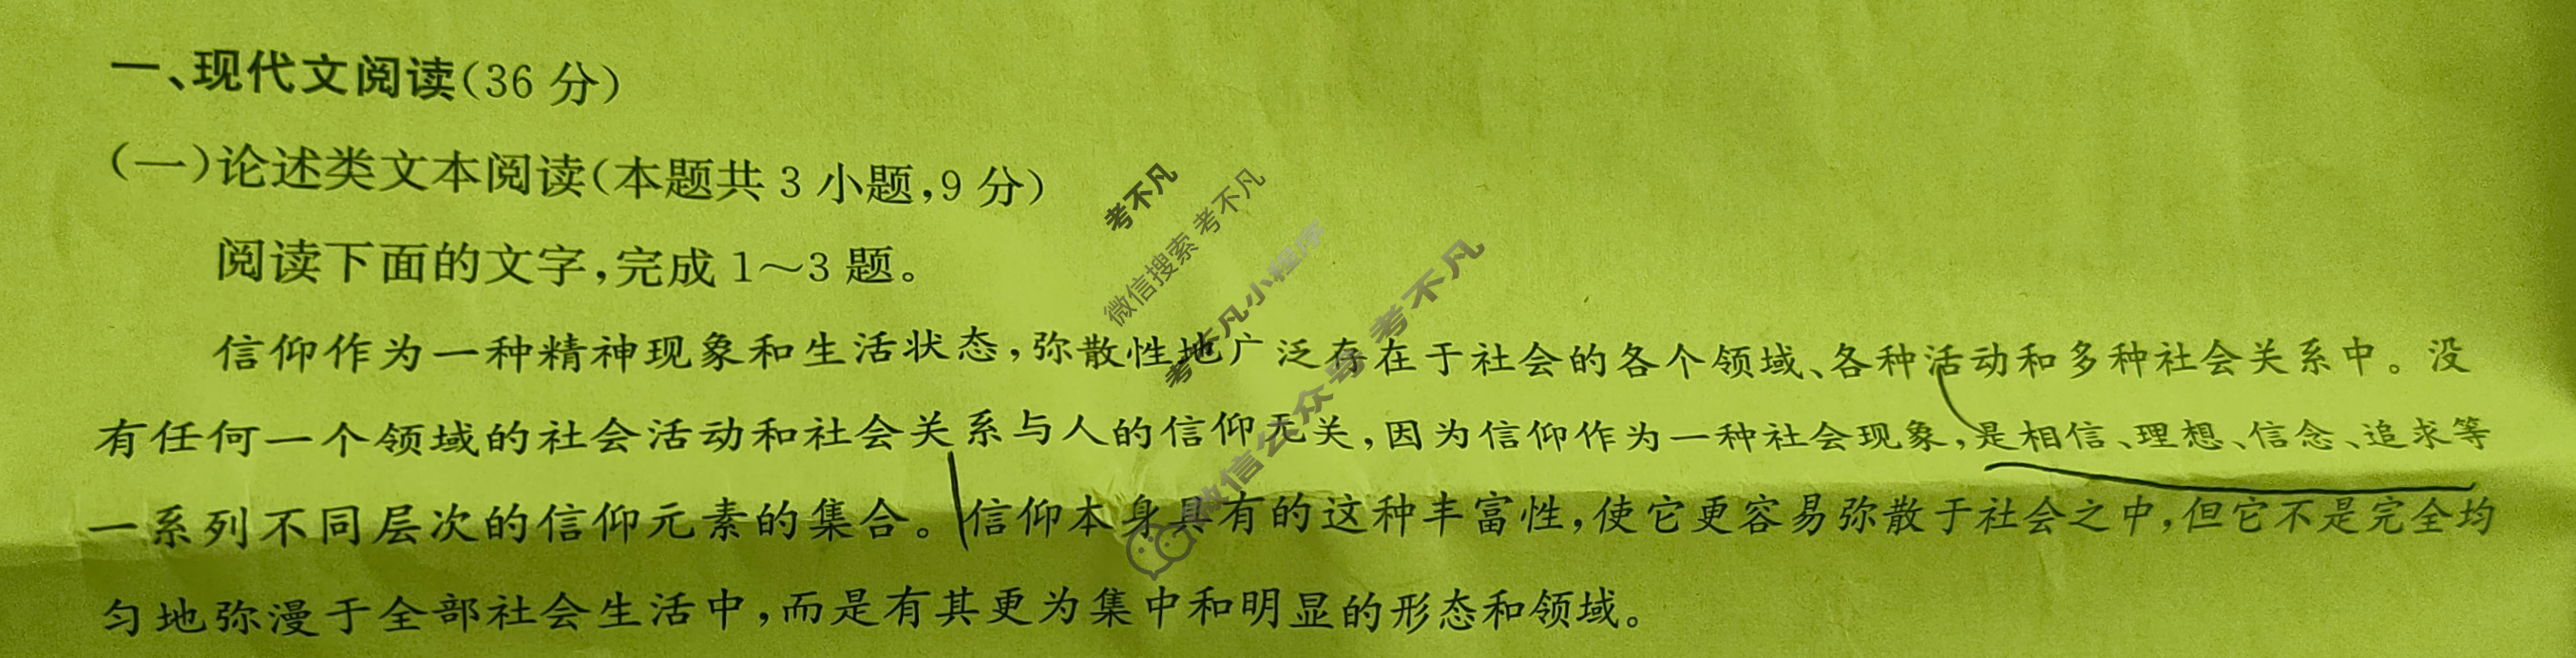 一、现代文阅读(36 分)
(一)论述类文本阅读(本题共 3 小题,9 分)
阅读下面的文字,完成 1～3 题。
信仰作为一种精神现象和生活状态,弥散性地广泛存在于社会的各个领域、各种活动和多种社会关系中。没
有任何一个领域的社会活动和社会关系与人的信仰无关,因为信仰作为一种社会现象,是相信、理想、信念、追求等
一系列不同层次的信仰元素的集合。信仰本身具有的这种丰富性,使它更容易弥散于社会之中,但它不是完全均
匀地弥漫于全部社会生活中,而是有其更为集中和明显的形态和领域。
考不凡
微信搜索 考不凡
考不凡小程序
微信公众号 考不凡